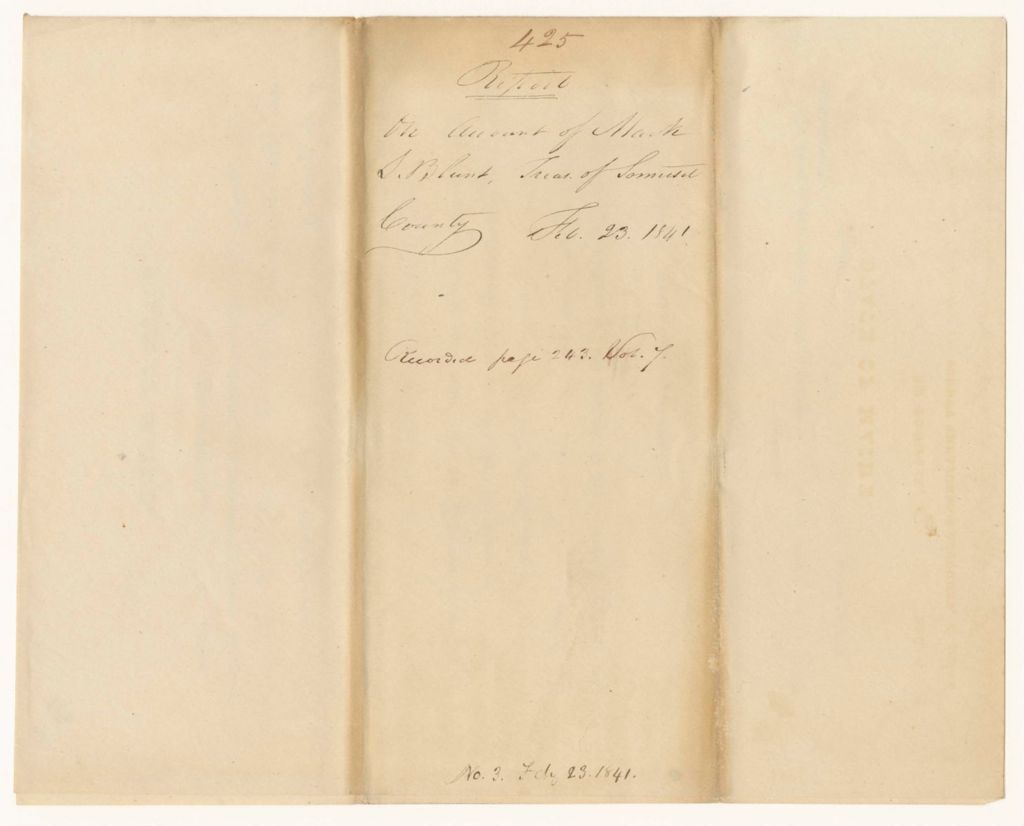 425
Report
On Account of Mark
S. Blunt, Treas. of Somerset
County Feb. 23. 1841
Recorded page 243. Vol. 7.
No. 3. Feby 23. 1841.
STATE OF MAINE